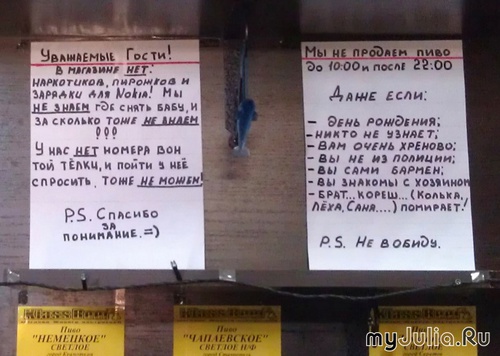 Уважаемые Гости!
В магазине нет:
наркотиков, пирожков и
зарядки для Nokia! Мы
не знаем где снять бабу, и
за сколько тоже не знаем
!!!
У нас нет номера вон
той тёлки, и пойти у неё
спросить, тоже не можем!
P.S. Спасибо
за
понимание. =)
Мы не продаем пиво
до 10:00 и после 22:00
Даже если:
- день рождения;
- никто не узнает;
- вам очень хреново;
- вы не из полиции;
- вы сами бармен;
- вы знакомы с хозяином
- брат... кореш... (Колька,
Лёха, Сана....) помирает!
P.S. Не в обиду.
Пиво
"НЕМЕЦКОЕ"
СВЕТЛОЕ
Пиво
"ЧАПАЕВСКОЕ"
СВЕТЛОЕ Н/Ф
Пиво
СВЕТЛОЕ
myJulia.Ru